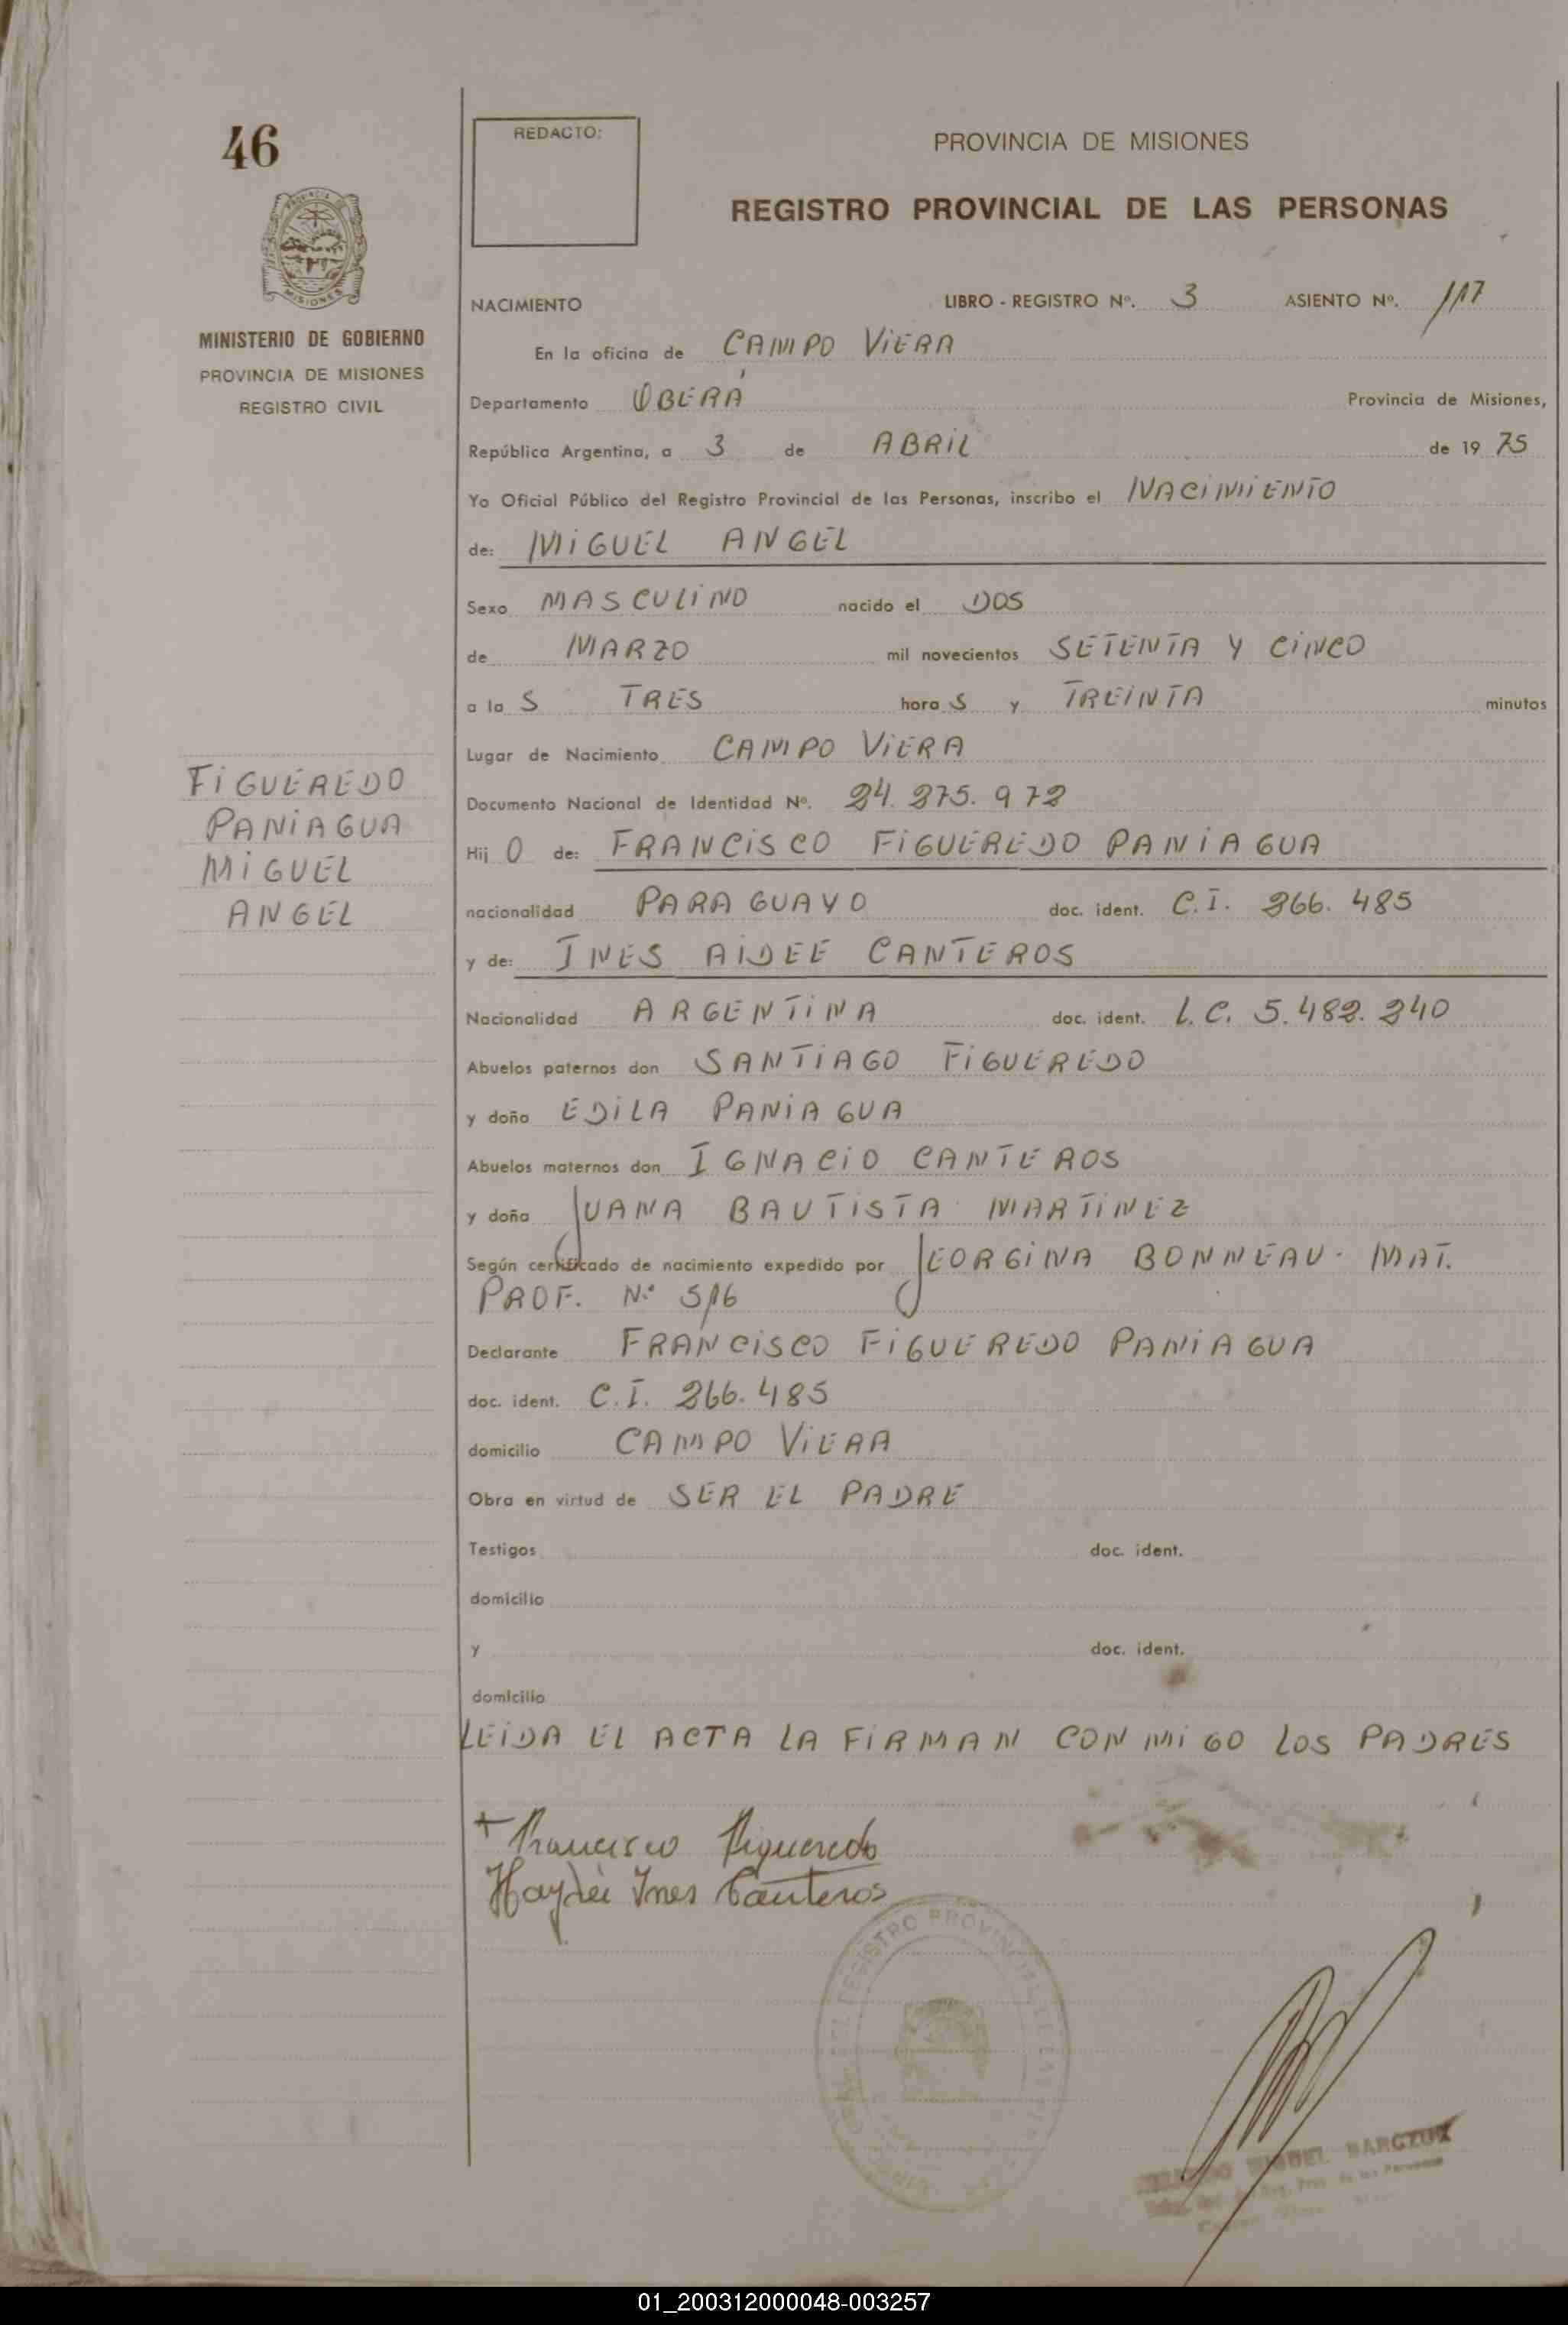 46
REDACTO:
PROVINCIA DE MISIONES
REGISTRO PROVINCIAL DE LAS PERSONAS
MISIONES
MINISTERIO DE GOBIERNO
PROVINCIA DE MISIONES
REGISTRO CIVIL
NACIMIENTO LIBRO - REGISTRO Nº. 3 ASIENTO Nº. 117
En la oficina de CAMPO VIERA
Departamento OBERÁ Provincia de Misiones,
República Argentina, a 3 de ABRIL de 19 75
Yo Oficial Público del Registro Provincial de las Personas, inscribo el NACIMIENTO
de: MIGUEL ANGEL
Sexo MASCULINO nacido el DOS
de MARZO mil novecientos SETENTA Y CINCO
a la S TRES hora S y TREINTA minutos
Lugar de Nacimiento CAMPO VIERA
Documento Nacional de Identidad Nº. 24.275.972
Hij O de: FRANCISCO FIGUEREDO PANIAGUA
nacionalidad PARAGUAYO doc. ident. C.I. 266.485
y de: INES AIDEE CANTEROS
Nacionalidad ARGENTINA doc. ident. L.C. 5.482.240
Abuelos paternos don SANTIAGO FIGUEREDO
y doña EDILA PANIAGUA
Abuelos maternos don IGNACIO CANTEROS
y doña JUANA BAUTISTA MARTINEZ
Según certificado de nacimiento expedido por JEORGINA BONNEAU. MAT.
PROF. Nº 516
Declarante FRANCISCO FIGUEREDO PANIAGUA
doc. ident. C.I. 266.485
domicilio CAMPO VIERA
Obra en virtud de SER EL PADRE
Testigos doc. ident.
domicilio
y doc. ident.
domicilio
LEIDA EL ACTA LA FIRMAN CONMIGO LOS PADRES
FIGUEREDO
PANIAGUA
MIGUEL
ANGEL
+ Francisco Figueredo
Haydée Ines Canteros
REGISTRO PROVINCIAL DE LAS
01_200312000048-003257